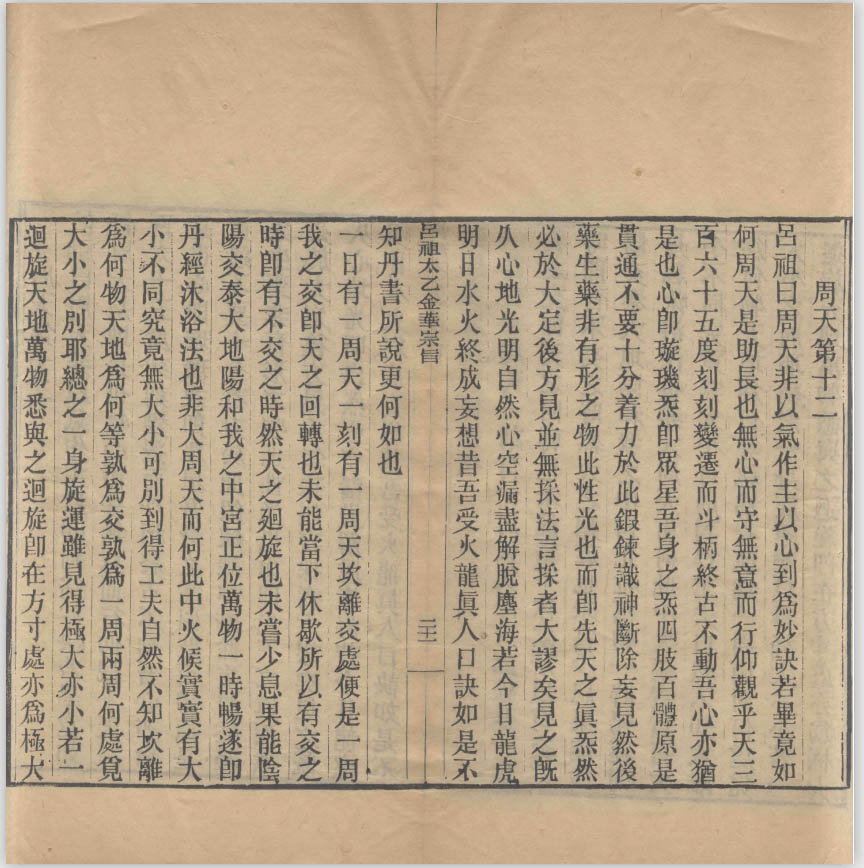 周天第十二
呂祖曰周天非以氣作主以心到爲妙訣若畢竟如
何周天是助長也無心而守無意而行仰觀乎天三
百六十五度刻刻變遷而斗柄終古不動吾心亦猶
是也心卽璇璣炁卽眾星吾身之炁四肢百體原是
貫通不要十分着力於此鍛鍊識神斷除妄見然後
藥生藥非有形之物此性光也而卽先天之眞炁然
必於大定後方見並無採法言採者大謬矣見之旣
久心地光明自然心空漏盡解脫塵海若今日龍虎
明日水火終成妄想昔吾受火龍眞人口訣如是不
呂祖太乙金華宗旨
二十一
知丹書所說更何如也
一日有一周天一刻有一周天坎離交處便是一周
我之交卽天之回轉也未能當下休歇所以有交之
時卽有不交之時然天之廻旋也未嘗少息果能陰
陽交泰大地陽和我之中宮正位萬物一時暢遂卽
丹經沐浴法也非大周天而何此中火候實實有大
小不同究竟無大小可別到得工夫自然不知坎離
爲何物天地爲何等孰爲交孰爲一周兩周何處覓
大小之別耶總之一身旋運雖見得極大亦小若一
迴旋天地萬物悉與之迴旋卽在方寸處亦爲極大